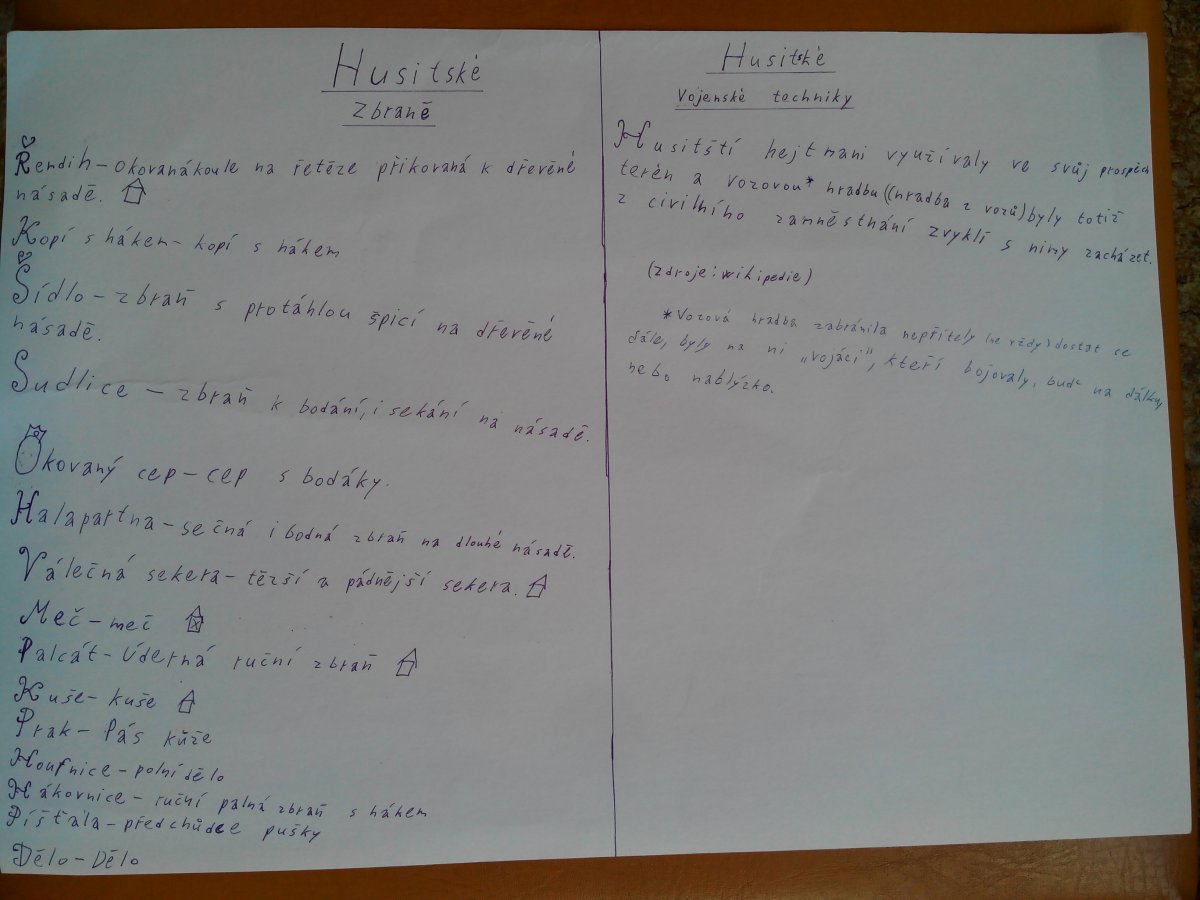 Husitské
Zbraně
Řemdih – okovanákoule na řetěze přikovaná k dřevěné
násadě.
Kopí s hákem – kopí s hákem
Šídlo – zbraň s protáhlou špicí na dřevěné
násadě.
Sudlice – zbraň k bodání, i sekání na násadě.
Okovaný cep – cep s bodáky.
Halapartna – sečná i bodná zbraň na dlouhé násadě.
Válečná sekera – těžší a pádnější sekera.
Meč – meč
Palcát – Úderná ruční zbraň
Kuše – kuše
Prak – Pás kůže
Houfnice – polní dělo
Hákovnice – ruční palná zbraň s hákem
Píšťala – předchůdce pušky
Dělo – Dělo
Husitské
Vojenské techniky
Husitští hejtmani využívaly ve svůj prospěch
terén a vozovou* hradbu((hradba z vozů) byly totiž
z civilního zaměstnání zvyklí s nimy zacházet.
(zdroje: wikipedie)
*Vozová hradba zabránila nepřítely (ne vždy) dostat se
dále, byly na ni „vojáci", kteří bojovaly, buď na dálku,
nebo nablýzko.